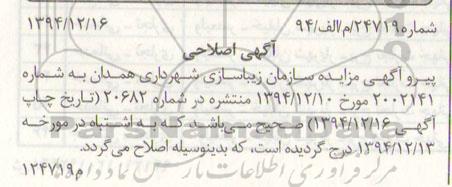 شماره ۲۴۷۱۹/م/الف/۹۴ ۱۳۹۴/۱۲/۱۶
آگهی اصلاحی
پیرو آگهی مزایده سازمان زیباسازی شهرداری همدان به شماره
۲۰۰۲۱۴۱ مورخ ۱۳۹۴/۱۲/۱۰ منتشره در شماره ۲۰۶۸۲ (تاریخ چاپ
آگهی ۱۳۹۴/۱۲/۱۶) صحیح می‌باشد که به اشتباه در مورخه
۱۳۹۴/۱۲/۱۳ درج گردیده است، که بدینوسیله اصلاح می‌گردد.
م۱۲۴۷۱۹
ParsNamadData
مرکز فرآوری اطلاعات پارس نماد داده‌ها